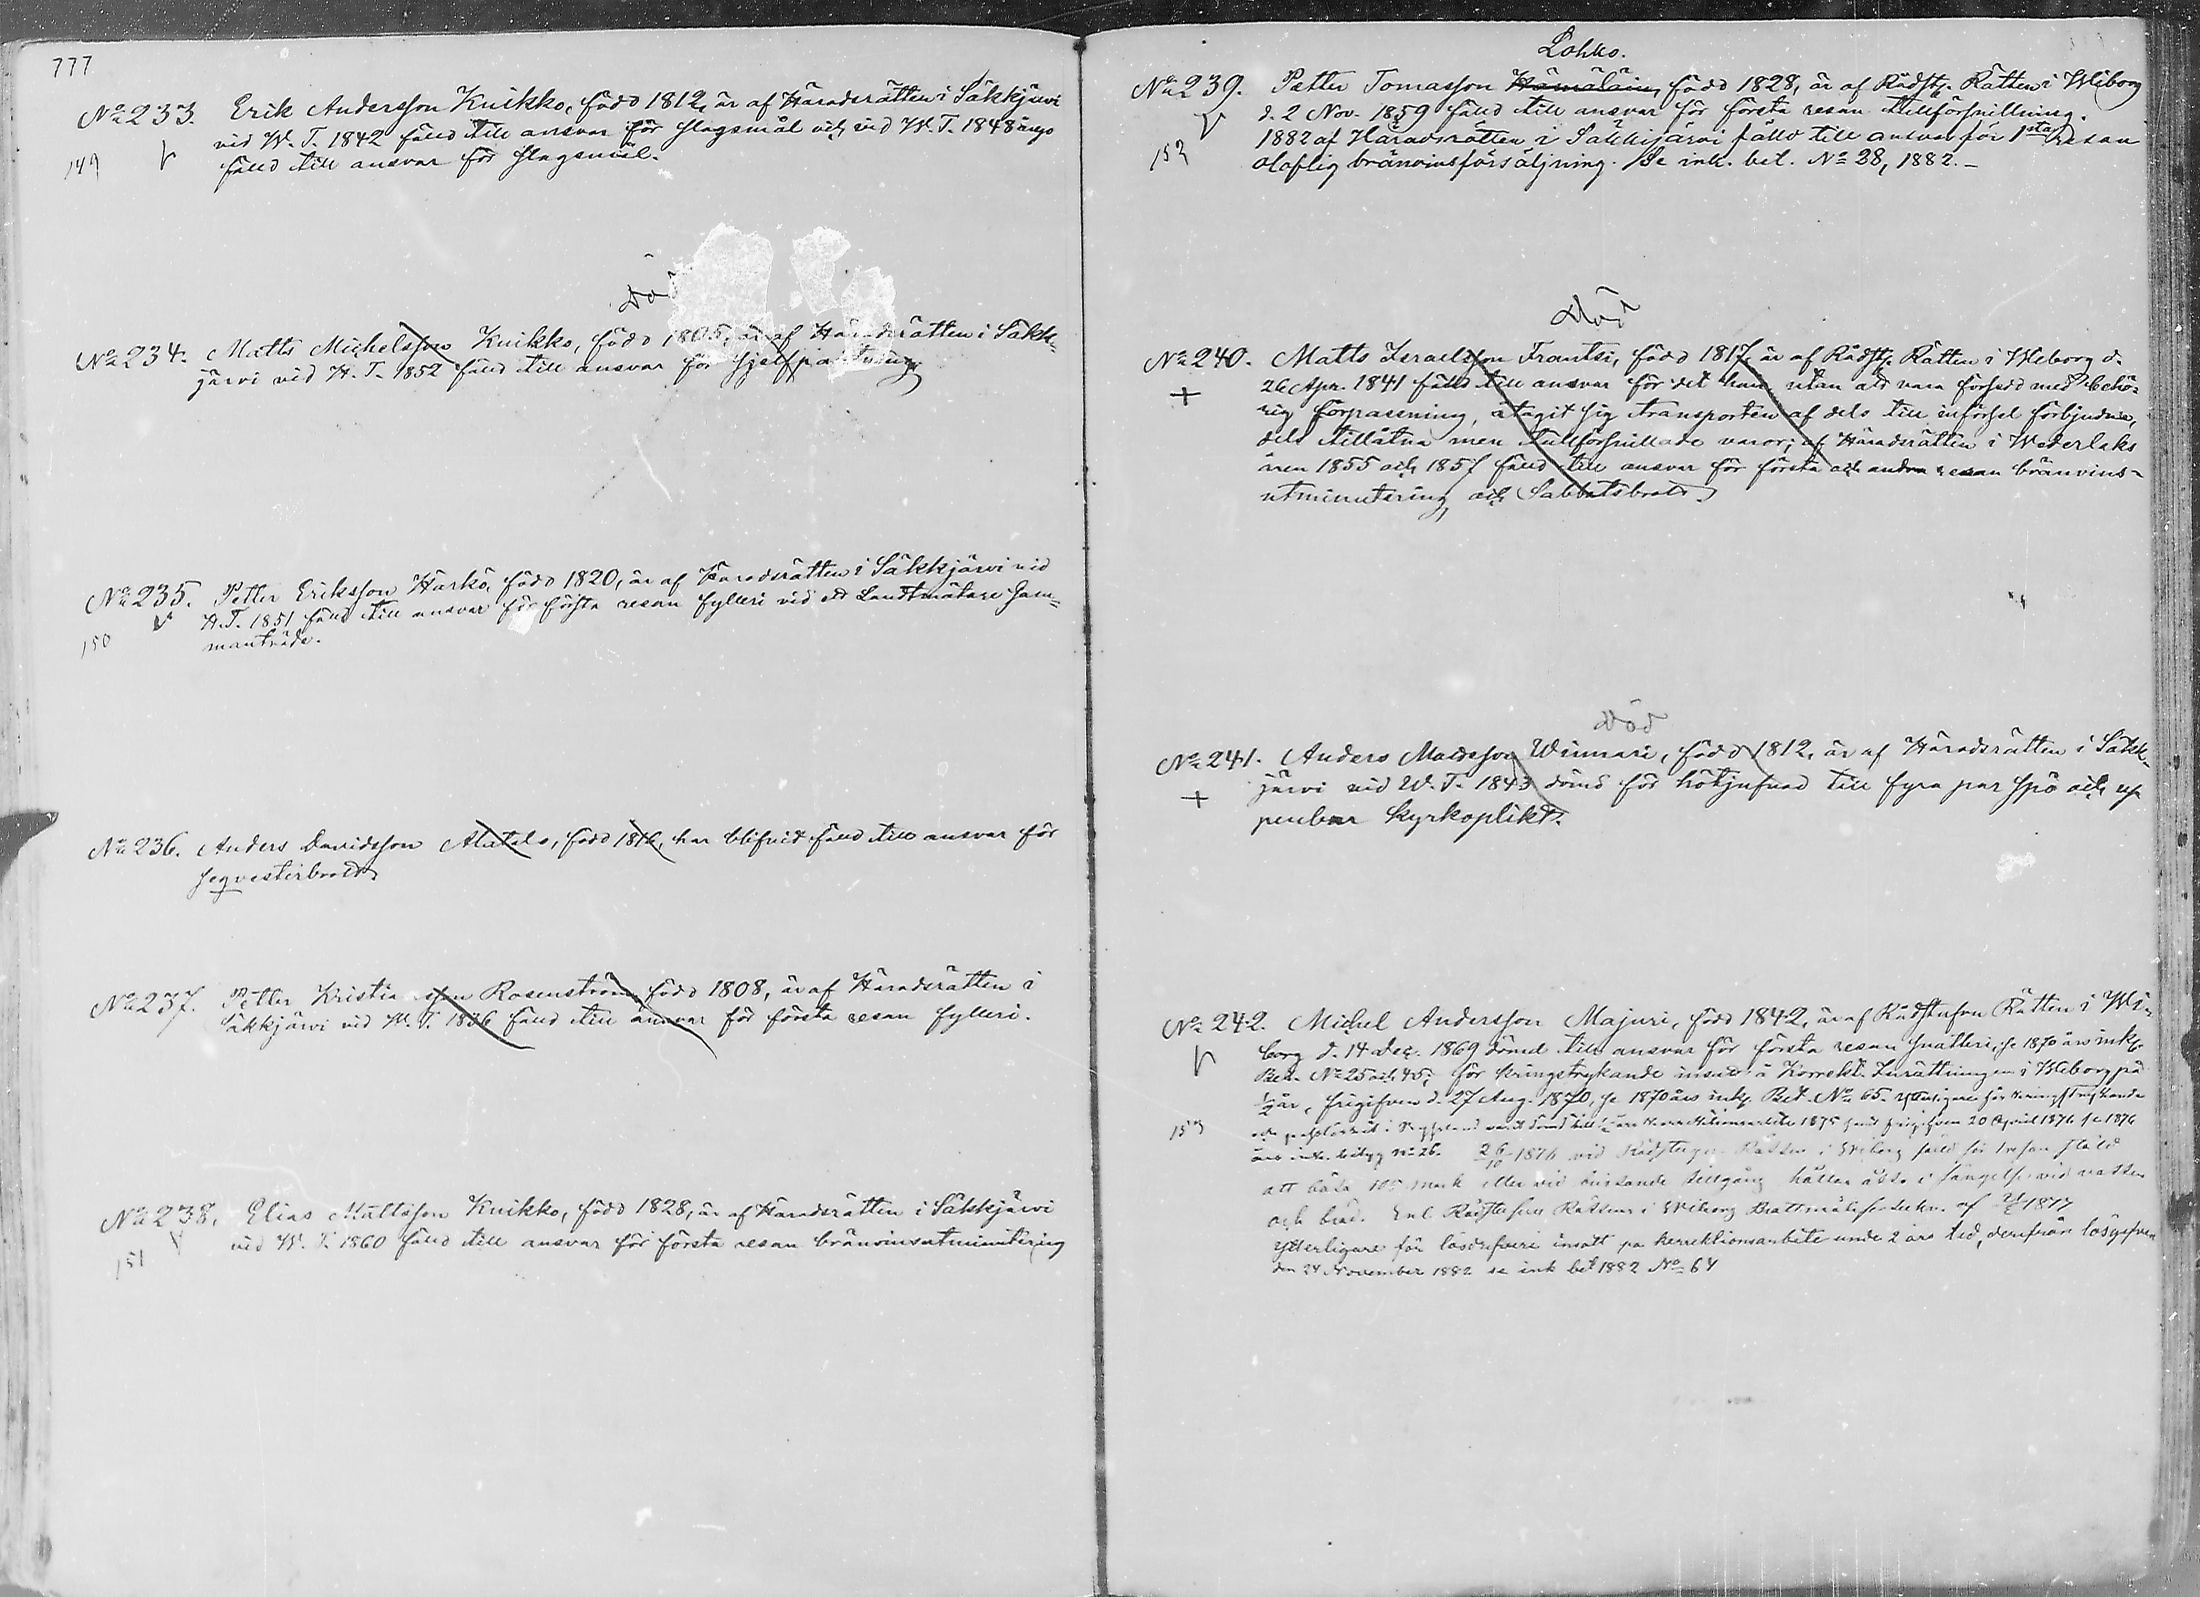 777
No 233. Erik Andersson Kuikko, född 1812, är af Häradsrätten i Säkkjärvi
vid W. T. 1842 fäld till ansvar för slagsmål och vid W. T. 1848
149 fäld till ansvar för slagsmål.
Död
No 234. Matts Michelsson Kuikko, född 1805, är af Häradsrätten i Säkk-
järvi vid H. T. 1852 fäld till ansvar för sjelfpantning
No 235. Petter Eriksson Härkö, född 1820, är af Häradsrätten i Säkkjärvi vid
H. T. 1851 fäld till ansvar för första resan fylleri vid ett Landtmätare sam-
150 manträde.
No 236. Anders Davidsson Alatalo, född 1816, har blifvit fäld till ansvar för
seqvesterbrott
No 237. Petter Kristiansson Rosenström, född 1808, är af Häradsrätten i
Säkkjärvi vid W. T. 1836 fäld till ansvar för första resan fylleri.
No 238. Elias Mattsson Kuikko, född 1828, är af Häradsrätten i Säkkjärvi
151 vid W. T. 1860 fäld till ansvar för första resan bränvinsutminutering
Lohko.
No 239. Petter Tomasson Hämäläin, född 1828, är af Rådst. Rätten i Wiborg
d. 2 Nov. 1859 fäld till ansvar för första resan tullförsnillning.
1882 af Häradsrätten i Säkkijärvi fälld till ansvar för 1sta resan
152 olaflig bränvinsförsäljning. Se ink. bet. No 28, 1882.-
Död
No 240. Matts Israelsson Frantsi, född 1817, är af Rådst. Rätten i Wiborg d.
26 Apr. 1841 fälld till ansvar för det han utan att vara försedd med behö-
+ rig förpassning, åtagit sig transporten af dels till införsel förbjudna,
dels tillåtna men tullförsnillade varor; af Häradsrätten i Wederlaks
åren 1855 och 1857 fäld till ansvar för första och andra resan bränvins-
utminutering och Sabbatsbrott.
Död
No 241. Anders Madsson Winnari, född 1812, är af Häradsrätten i Säkk-
järvi vid W. T. 1843 dömd för hötjufnad till fyra par spö och up-
+ penbar kyrkoplikt.
No 242. Michel Andersson Majuri, född 1842, är af Rådstufvu Rätten i Wi-
borg d. 14 Dec. 1869 dömd till ansvar för första resan snatteri, se 1870 års ink.
Bet. No 25 och 45; för kringstrykande insatt å Korrekt. Inrättningen i Wiborg på
1/2 år, frigifven d. 27 Aug. 1870, se 1870 års ink. Bet. No 65. Ytterligare för kringstrykande
153 korrektionsarbete 1875 frigifven 20 April 1876 se 1876
års ink. No 26. 26/10 1876 vid Rådstugu Rätten i Wiborg fäld för 1 resan stöld
att böta 105 mark eller vid bristande tillgång hållas i fängelse vid vatten
och bröd. Enl. Rådstufvu Rättens i Wiborg Brottmåls 1877
Ytterligare för lösdrifveri insatt på korrektionsarbete under 2 års tid, derifrån lösgifven
den 24 November 1882 se ink bet 1882 No 64